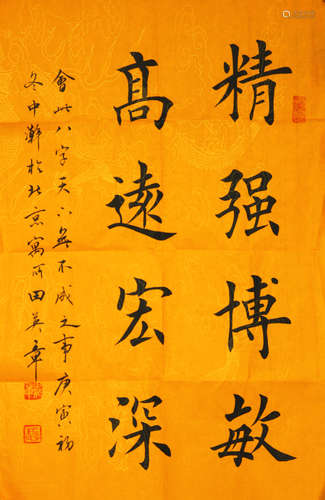 精强博敏
高遠宏深
會此八字天下無不成之事庚寅初
冬中澣於北京寓所田英章